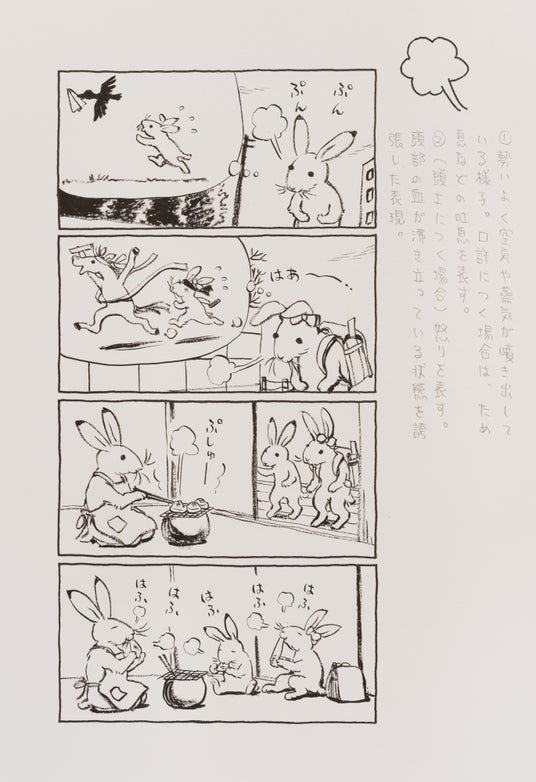 ①勢いよく空気や蒸気が噴き出して
いる様子。口許につく場合は、ため
息などの吐息を表す。
②（頭上につく場合）怒りを表す。
頭部の血が沸き立っている状態を誇
張した表現。
ぷん
ぷん
はあ〜
ぷしゅー
はふ
はふ
はふ
はふ
はふ